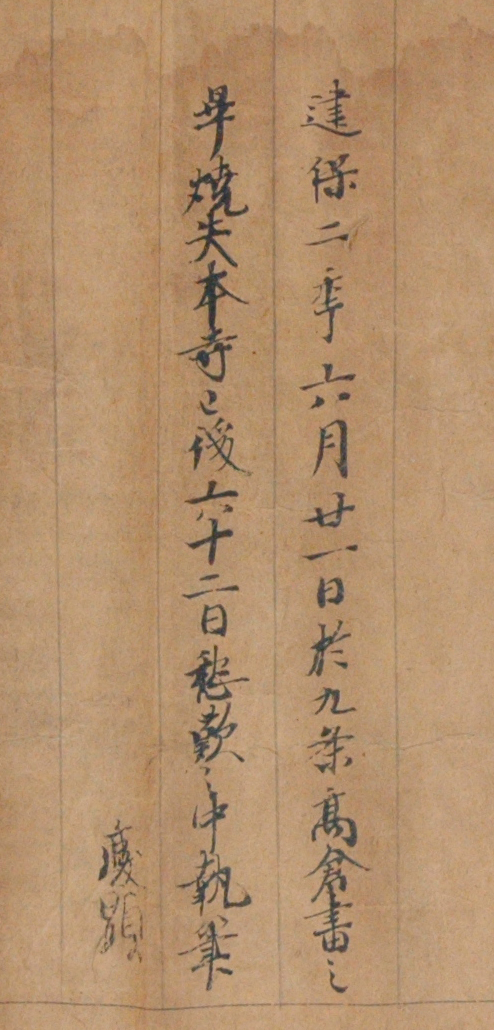 建保二年六月廿一日於九条高倉書之
畢焼失本寺已後六十二日愁歎之中執筆